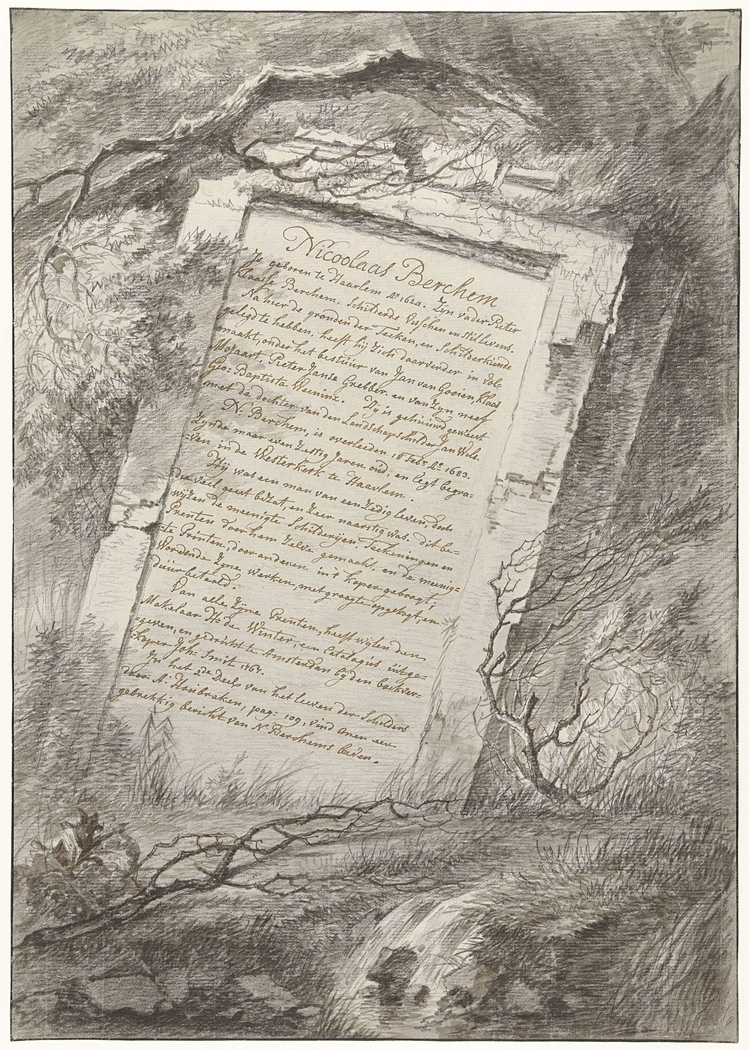 Nicoolaas Berchem
Is geboren te Haarlem Aº 1624. Zijn vader Pieter
Klaasse Berchem, Schilderde Visschen en Stil Levens.
Na hier de gronden der Teeken, en Schilderkunde
gelegt te hebben, heeft hij Zich daar verder in vol-
maakt, onder het bestuur van Jan van Gooien, Klaas
Mojaart, Pieter Janse Grebber, en van Zijn neef
Gio: Baptista Weeninx. Hij is gehuuwd geweest
met de dochter van den Landschapschilder Jan Wils.
N. Berchem, is overleeden 18 Febr. Aº 1683.
Zijnde maar even Zestig Jaren oud, en legt begra-
ven, in de Westerkerk te Haarlem.
Hij was een man van een Zedig leven, doch
die veel geest bezat, en zeer naarstig was, dit be-
wijzen de meenigte Schilderijen, Teekeningen en
Prenten door hem Zelve gemaakt, en de meenig-
te Printen, door anderen in 't koper gebragt,
Wordende Zijne werken, met graagte opgekogt, en
duur betaald.
Van alle Zijne Prenten, heeft wijlen den
Makelaar H. de Winter, een Catalogus uitge-
geven, en gedrukt te Amsterdam bij den boekver-
koper Joh. Smit 1767.
In het Deel van het Leeven der Schilders
door A. Houbraken, pag: 109, vind men een
gebrekkig bericht van N. Berchems leven.